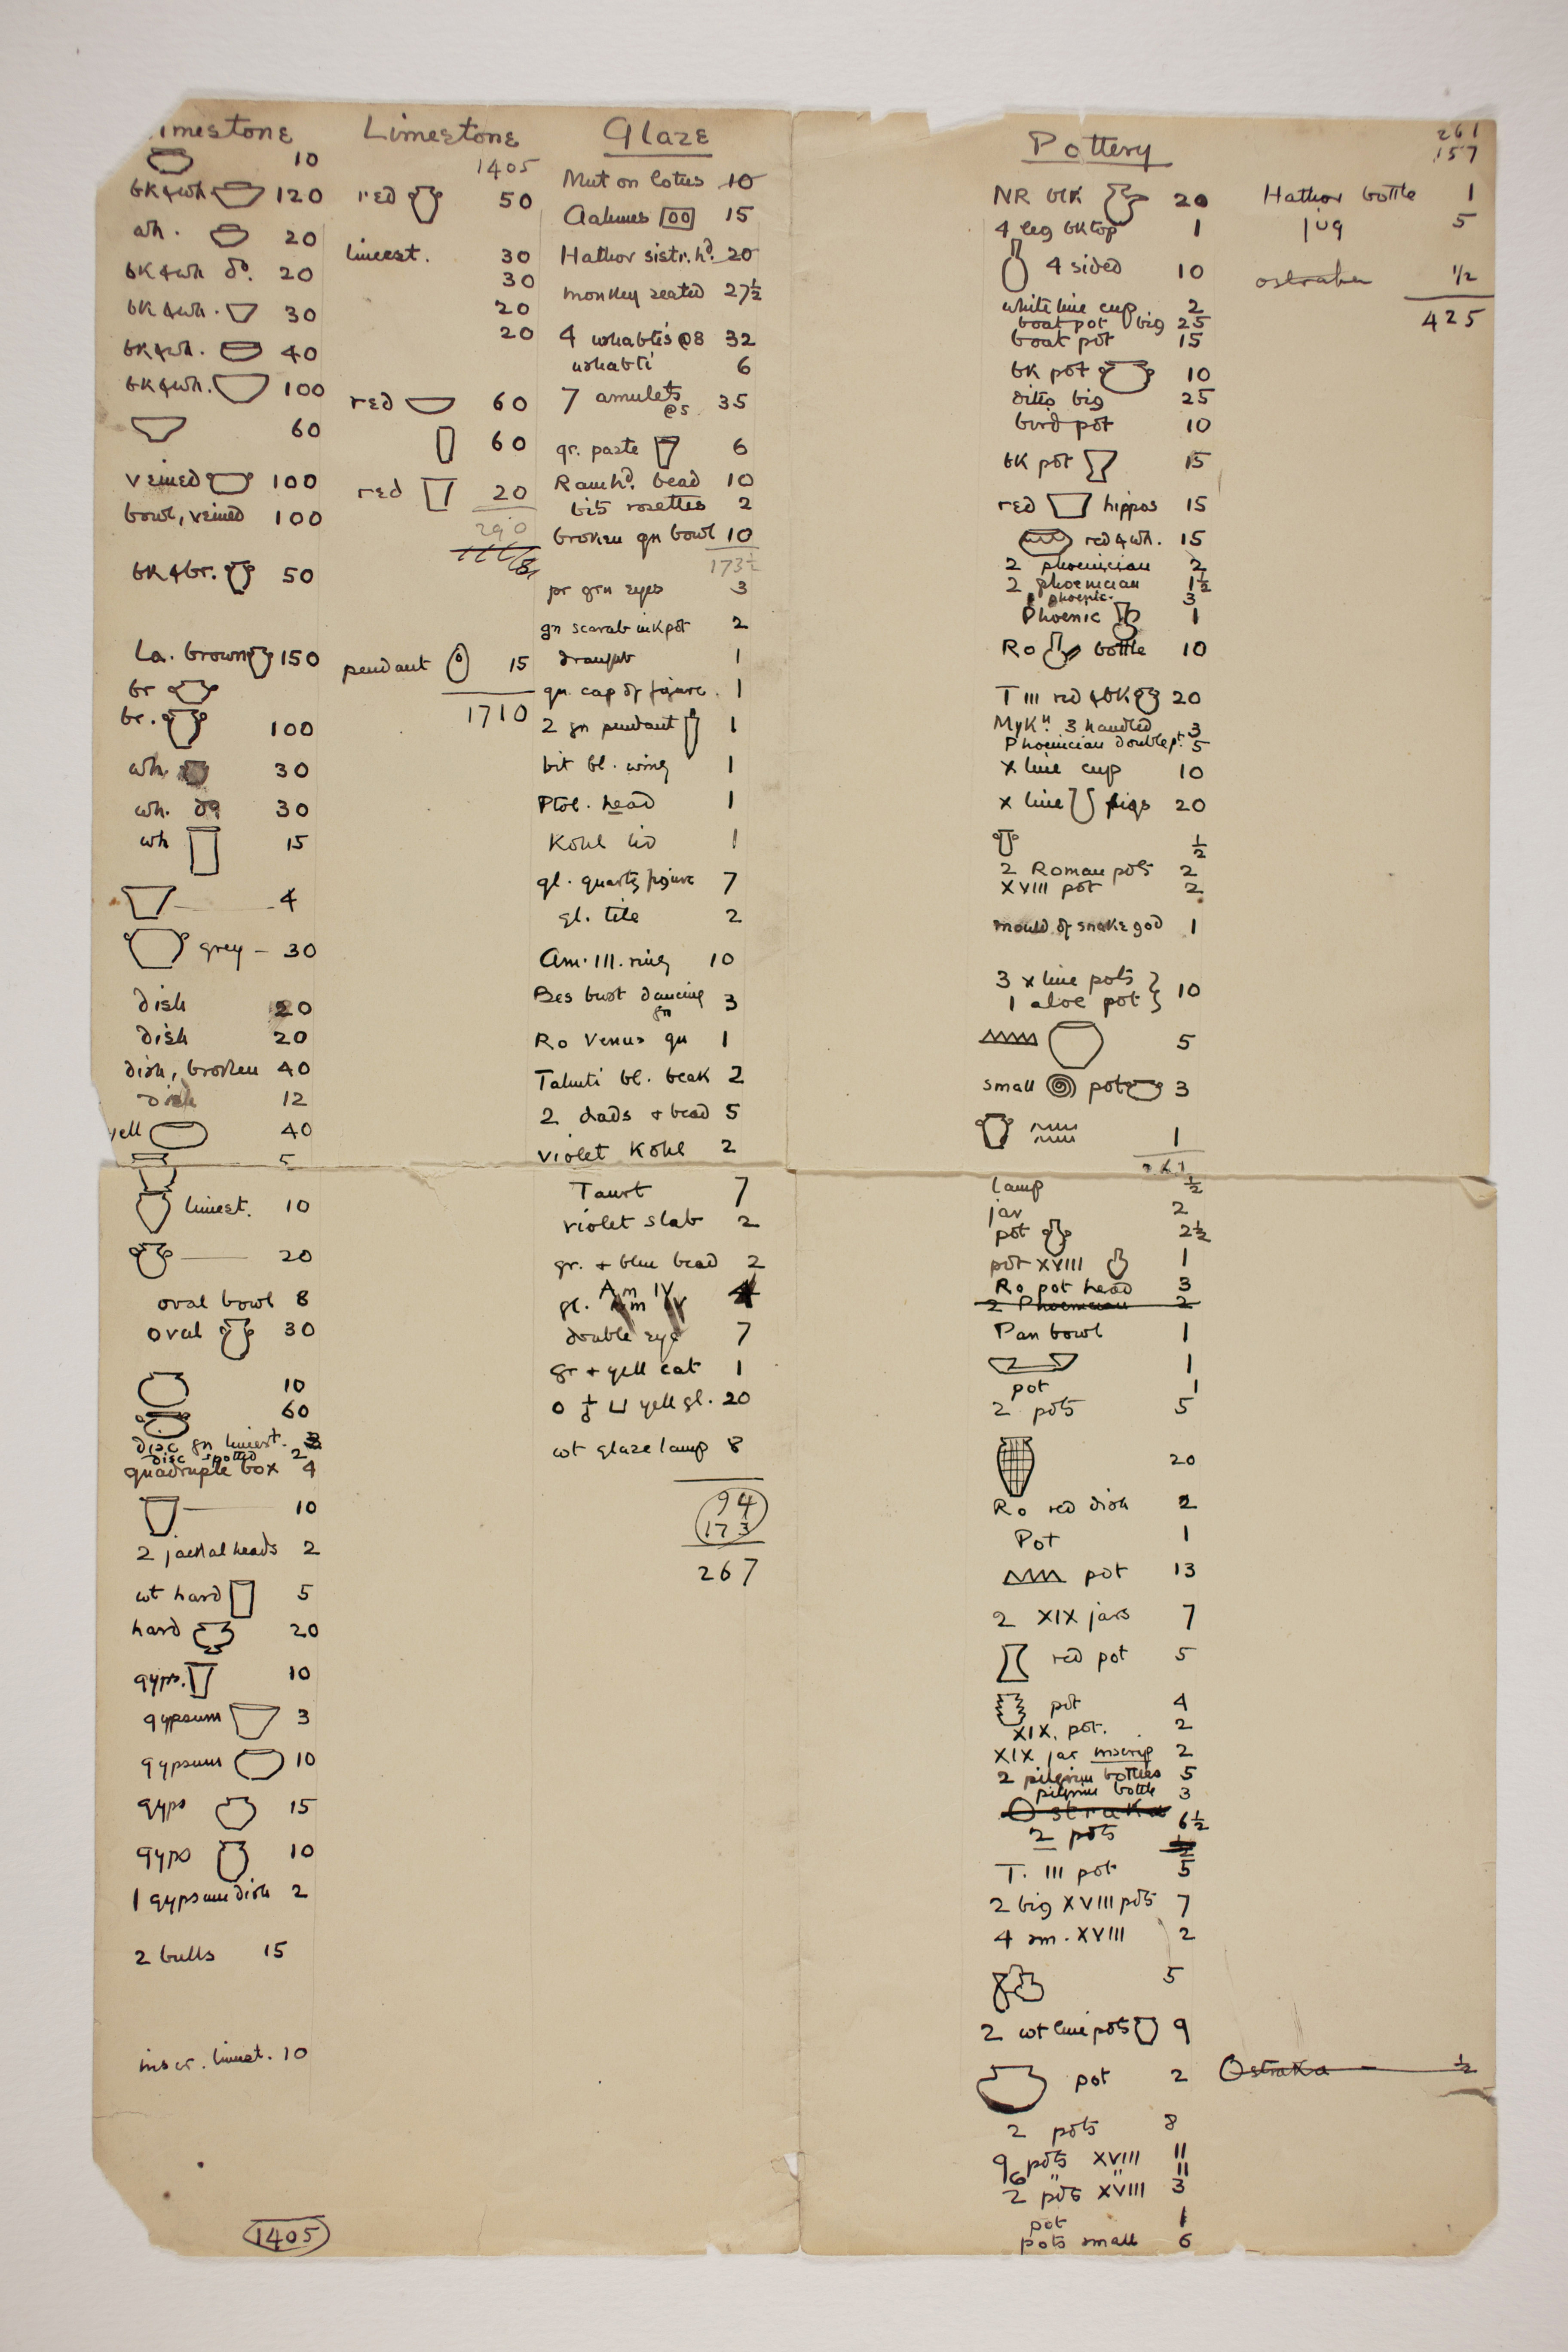 imestone
10
bk&wh. 120
wh. 20
bk&wh do. 20
bk&wh. 30
bk&wh. 40
bk&wh. 100
60
veined 100
bowl, veined 100
bk&br. 50
La. brown 150
br
br. 100
wh. 30
wh. do 30
wh 15
4
grey - 30
dish 20
dish 20
dish, broken 40
dish 12
yell 40
5
limest. 10
20
oval bowl 8
oval 30
10
60
disc gn limest. 3
disc spotted 2
quadruple box 4
10
2 jackal heads 2
wt hard 5
hard 20
gyps. 10
gypsum 3
gypsum 10
gyps 15
gyps 10
1 gypsum dish 2
2 bulls 15
inscr. limest. 10
1405
Limestone
1405
red 50
limest. 30
30
20
20
red 60
60
red 20
290
pendant 15
1710
Glaze
Mut on lotus 10
Aahmes 15
Hathor sistr. hd. 20
monkey seated 27½
4 ushabtis @8 32
ushabti 6
7 amulets @5 35
gr. paste 6
Ram hd. bead 10
bits rosettes 2
broken gn bowl 10
173½
pr grn eyes 3
gn scarab inkpot 2
draught 1
gn. cap of figure. 1
2 gn pendant 1
bit bl. wing 1
Ptol. head 1
Kohl lid 1
gl. quartz figure 7
gl. tile 2
Am. III. ring 10
Bes bust dancing gn 3
Ro Venus gn 1
Tahuti bl. beak 2
2 dads & bead 5
violet Kohl 2
Taurt 7
violet slab 2
gr. + blue bead 2
gl. Am IV 4
double eye 7
gr + yell cat 1
yell gl. 20
wt glaze lamp 8
94
173
267
Pottery
NR blk 20
4 leg bk top 1
4 sided 10
white line cup 2
boat pot big 25
boat pot 15
bk pot 10
ditto big 25
bird pot 10
bk pot 15
red hippos 15
red & wh. 15
2 phoenician 2
2 phoenician 1½
phoenic. 3
Phoenic 1
Ro bottle 10
T III red & bk 20
Myk". 3 handled 3
Phoenician double pt. 5
x line cup 10
x line figs 20
½
2 Roman pots 2
XVIII pot 2
mould of snake god 1
3 x line pots }
1 aloe pot } 10
5
small pot 3
1
261
lamp ½
jar 2
pot 2½
pot XVIII 1
Ro pot head 3
2 Phoenician 2
Pan bowl 1
1
pot 1
2 pots 5
20
Ro red dish 2
Pot 1
pot 13
2 XIX jars 7
red pot 5
pot 4
XIX. pot. 2
XIX jar inscrip 2
2 pilgrim bottles 5
pilgrim bottle 3
Ostraka 6½
2 pots
T. III pot 5
2 big XVIII pots 7
4 sm. XVIII 2
5
2 wt line pots 9
pot 2
2 pots 8
9 pots XVIII 11
6 " " 11
2 pots XVIII 3
pot 1
pots small 6
261
157
Hathor bottle 1
jug 5
ostraka ½
425
Ostraka - ½